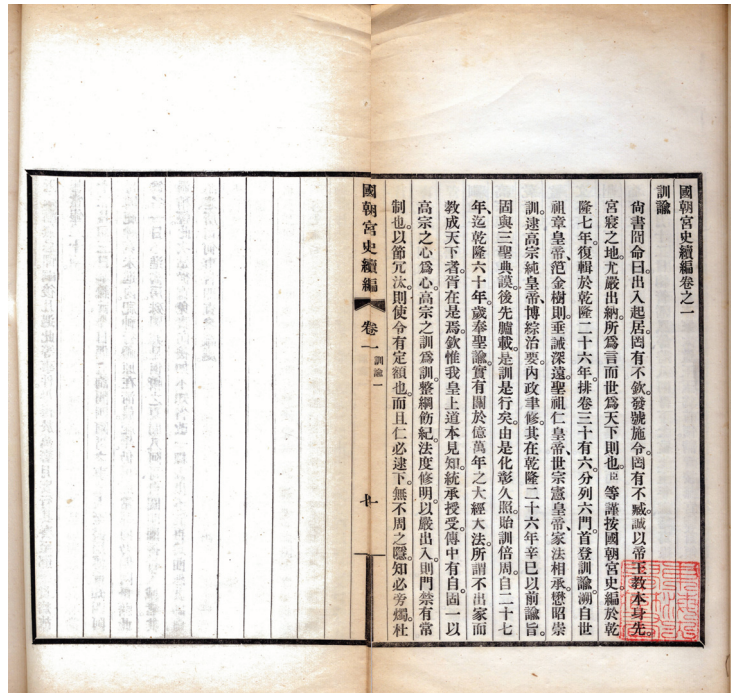 國朝宮史續編卷之一
訓諭
尙書冏命曰出入起居罔有不欽。發號施令。罔有不臧。誠以帝王敎本身先。
宮寢之地。尤嚴出納。所爲言而世爲天下則也。臣等謹按國朝宮史編於乾
隆七年。復輯於乾隆二十六年。排卷三十有六。分列六門。首登訓諭。溯自世
祖章皇帝、范金樹則。垂誡深遠。聖祖仁皇帝、世宗憲皇帝、家法相承。懋昭崇
訓。逮高宗純皇帝、博綜治要。內政聿修。其在乾隆二十六年辛巳以前諭旨。
固與三聖典謨。後先臚載。是訓是行矣。由是化彰久照。貽訓倍周。自二十七
年、迄乾隆六十年。歲奉聖諭。實有關於億萬年之大經大法。所謂不出家而
敎成天下者。胥在是焉。欽惟我皇上道本見知。統承授受。傳中有自。固一以
高宗之心爲心。高宗之訓爲訓。整綱飭紀。法度修明。以嚴出入。則門禁有常
制也。以節冗汰。則使令有定額也。而且仁必逮下。無不周之隱。知必旁燭。杜
國朝宮史續編
卷一
訓諭一